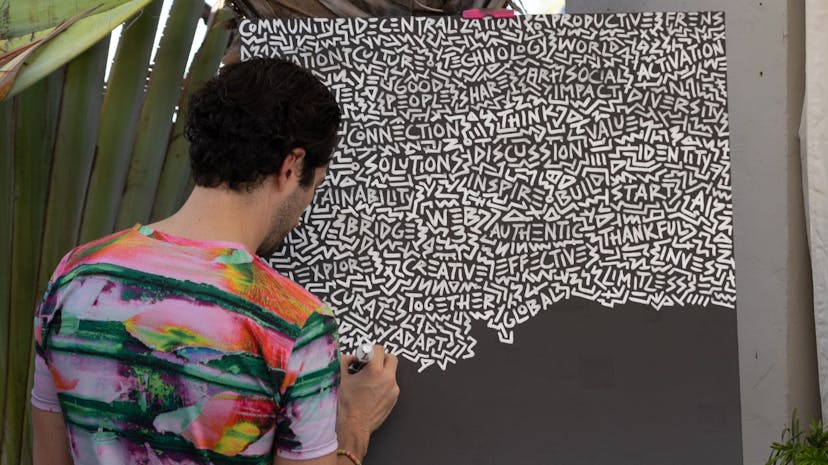 COMMUNITY DECENTRALIZATION & PRODUCTIVE FRENS
CULTURE TECHNOLOGY WORLD
ART SOCIAL ACTIVATION
GOOD IMPACT
PEOPLE DIVERSITY
CONNECTION THINK VALUE
SOLUTIONS DISCUSSION IDENTITY
INSPIRE BUILD START
TAINABILITY
WEB3 AUTHENTIC THANKFUL
BRIDGE
XPLOR CREATIVE EFFECTIVE INVEST
LIMITLESS
CURATE TOGETHER GLOBAL
ADAPT